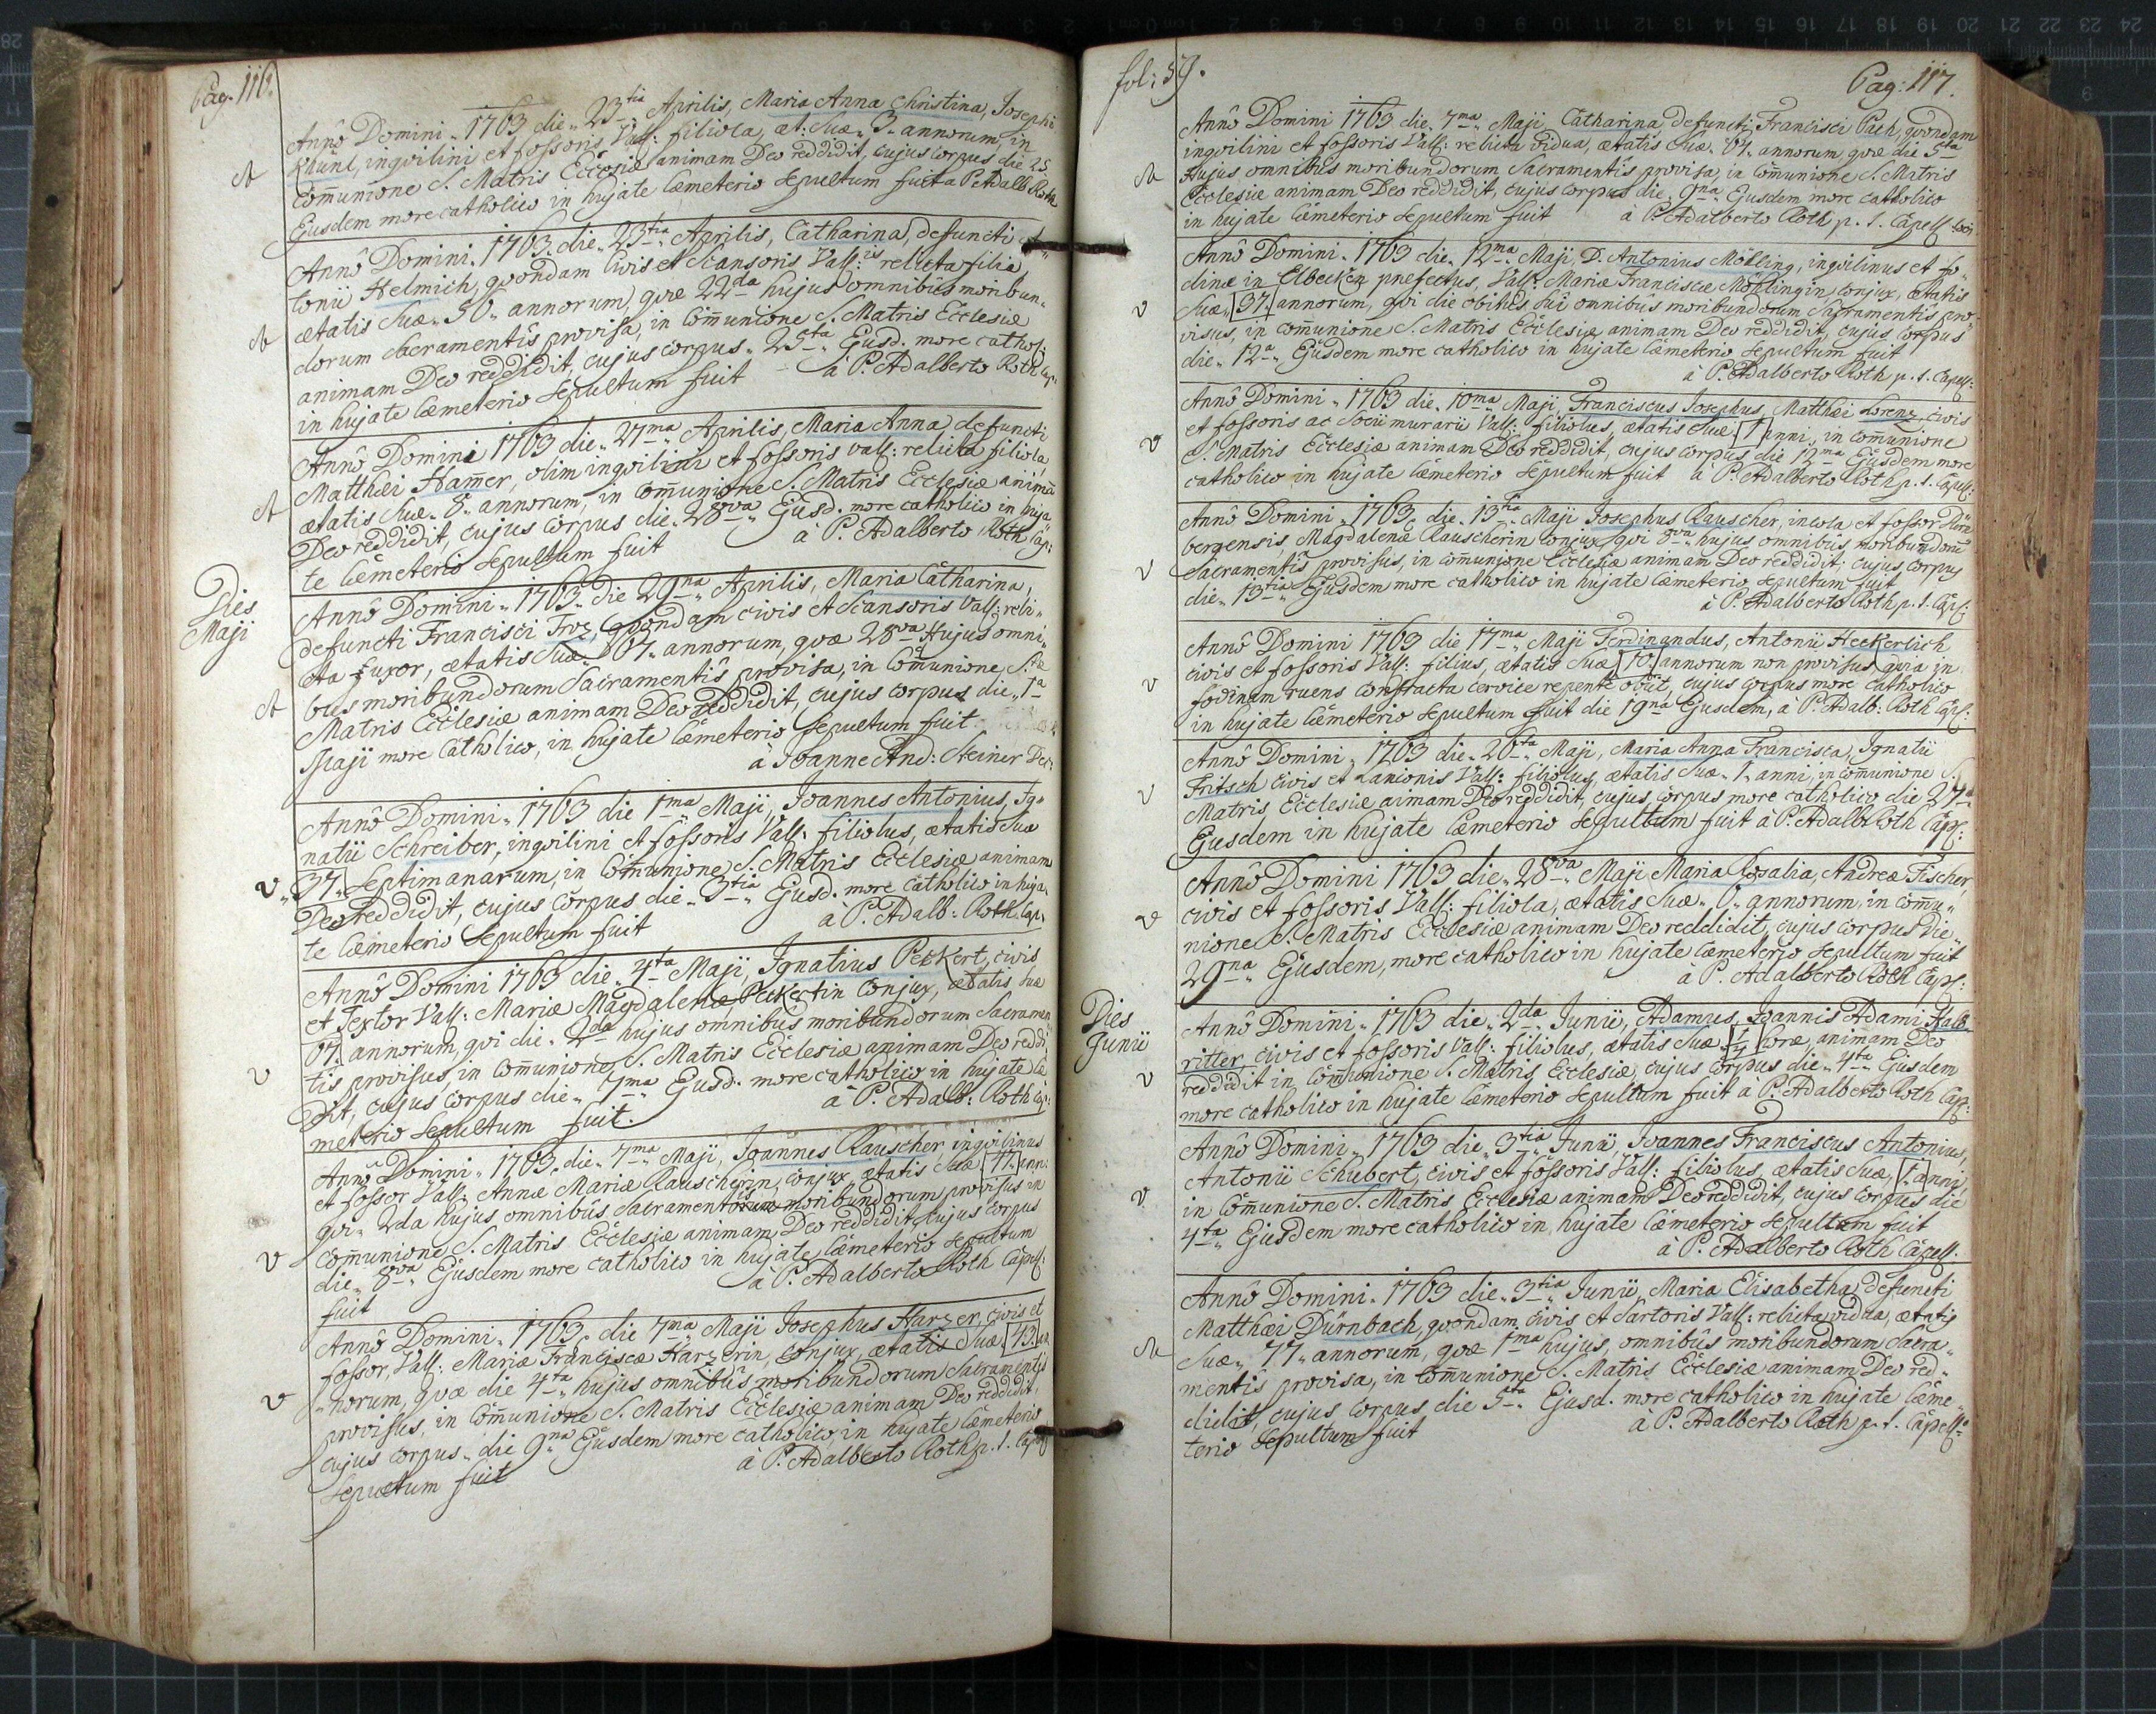 Pag. 116.
Annô Domini. 1763 die. 23tia Aprilis, Maria Anna Christina, Josephi
Khünl, inqvilini et fossoris Vall: filiola, æt: Suæ. 3. annorum, in
Com̄unione S. Matris Ecclesiæ animam Deo reddidit, cujus corpus die 25
Ejusdem more catholico in hujate Cæmeterio sepultum fuit a P. Adalb Roth
A
Annô Domini. 1763. die. 23tia Aprilis, Catharina, defuncti An„
tonii Helmich, qvondam Civis et Scansoris Vall:is relicta filia,
ætatis Suæ. 50. annorum, qvæ 22da hujus omnibus moribun„
dorum Sacramentis provisa, in Com̄unione S. Matris Ecclesiæ
animam Deo reddidit, cujus corpus. 25ta Ejusd. more cathol:
in hujate Cæmeterio sepultum fuit à P. Adalberto Roth Cap.
A
Annô Domini 1763 die. 27ma Aprilis, Maria Anna, defuncti
Matthæi Ham̄er, olim inqvilini et fossoris Vall: relicta filiola,
ætatis Suæ. 8. annorum, in Com̄unione S. Matris Ecclesiæ animā
Deo reddidit, cujus corpus die. 28va Ejusd. more catholico in huja„
te Cæmeterio sepultum fuit à P. Adalberto Roth Cap:
A
Dies
Maji
Annô Domini. 1763. die 29na Aprilis, Maria Catharina,
defuncti Francisci Froz, qvondam civis et Scansoris Vall: reli„
cta Fuxor, ætatis Suæ. 67. annorum, qvæ 28va Hujus omni„
bus moribundorum Sacramentis provisa, in Com̄unione S.tæ
Matris Ecclesiæ animam Deo reddidit, cujus corpus die. 1a
Maji more Catholico, in hujate Cæmeterio sepultum fuit
à Joanne And: Steiner Dec:
A
Annô Domini. 1763 die 1ma Maji, Joannes Antonius, Ig„
natii Schreiber, inqvilini et fossoris Vall: filiolus, ætatis Suæ
37. Septimanarum, in Com̄unione S. Matris Ecclesiæ animam
Deo reddidit, cujus corpus die. 3tia Ejusd. more catholico in huja„
te Cæmeterio sepultum fuit à P. Adalb: Roth Cap.
v
Annô Domini 1763 die. 4ta Maji, Ignatius Peckert, civis
et Textor Vall: Mariæ Magdalenæ Peckertin Conjux, ætatis suæ
67. annorum, qvi die. 2da hujus omnibus moribundorum Sacramen
tis provisus, in Com̄unione S. Matris Ecclesiæ animam Deo reddi
dit, cujus corpus die. 7ma Ejusd. more catholico in hujate Cæ
meterio sepultum fuit. à P. Adalb: Roth Cap:
v
Annô Domini. 1763. die. 7ma Maji, Joannes Rauscher, inqvilinus
et fossor Vall: Annæ Mariæ Rauscherin, conjux, ætatis Suæ 77. ann:
qvi. 2da hujus omnibus Sacramentis moribundorum provisus in
Com̄unione S. Matris Ecclesiæ animam Deo reddidit, cujus corpus
die. 8va Ejusdem more catholico in hujate Cæmeterio sepultum
fuit à P. Adalberto Roth Capell:
v
Annô Domini. 1763. die 7ma Maji Josephus Harzer, civis et
fossor, Vall: Mariæ Franciscæ Harzerin, Conjux, ætatis Suæ 43. an
norum, qvæ die 4ta hujus omnibus moribundorum Sacramentis
provisus, in Com̄unione S. Matris Ecclesiæ animam Deo reddidit,
cujus corpus. die 9na Ejusdem more catholico in hujate Cæmeterio
sepultum fuit à P. Adalberto Roth p. t. Capell:
v
fol: 59.
Pag: 117.
Annô Domini 1763 die. 7ma Maji, Catharina, defuncti Francisci Pach, qvondam
inqvilini et fossoris Vall: relicta vidua, ætatis Suæ. 67. annorum, qvæ die 5ta
Hujus omnibus moribundorum Sacramentis provisa, in Com̄unione S. Matris
Ecclesiæ animam Deo reddidit, cujus corpus die. 9na Ejusdem more catholico
in hujate Cæmeterio sepultum fuit à P. Adalberto Roth p. t. Capell. loci
A
Annô Domini. 1763 die. 12ma Maji, D. Antonius Mökling, inqvilinus et fo„
dinæ in Elbecken præfectus, Vall: Mariæ Franciscæ Möhlingin, Conjux, ætatis
Suæ. 37. annorum, qvi die obitus sui omnibus moribundorum Sacramentis pro„
visus, in com̄unione S. Matris Ecclesiæ animam Deo reddidit, cujus corpus
die. 12a Ejusdem more catholico in hujate Cæmeterio sepultum fuit
à P. Adalberto Roth p. t. Capell:
v
Annô Domini. 1763 die. 10ma Maji, Franciscus Josephus, Matthæi Lorenz, civis
et fossoris ac Socii murarii Vall: filiolus, ætatis Suæ. 1. anni, in com̄unione
S. Matris Ecclesiæ animam Deo reddidit, cujus corpus die 12ma Ejusdem more
catholico in hujate Cæmeterio sepultum fuit à P. Adalberto Roth p. t. Capell:
v
Annô Domini. 1763. die. 13tia Maji Josephus Rauscher, incola et fossor Dürn
bergensis, Magdalenæ Rauscherin Conjux, qvi 8va hujus omnibus moribundorū
Sacramentis provisus, in com̄unione Ecclesiæ animam Deo reddidit, cujus corpus
die. 13tia Ejusdem more catholico in hujate Cæmeterio sepultum fuit
à P. Adalberto Roth p. t. Cap:
v
Annô Domini 1763 die 17ma Maji Ferdinandus, Antonii Heckerlich
civis et fossoris Vall: filius, ætatis Suæ 10. annorum non provisus qvia in
fodinam ruens confracta cervice repentè obiit, cujus corpus more catholico
in hujate Cæmeterio sepultum fuit die 19na Ejusdem, à P. Adalb: Roth Cap:
v
Annô Domini. 1763 die. 26ta Maji, Maria Anna Francisca, Ignatii
Fritsch civis et Lanionis Vall: filiolus, ætatis Suæ. 1. anni, in com̄unione S.
Matris Ecclesiæ aimam Deo reddidit, cujus corpus more catholico die 27a
Ejusdem in hujate Cæmeterio sepultum fuit à P. Adalb Roth Cap:
v
Annô Domini 1763 die. 28va Maji Maria Rosalia, Andreæ Fischer,
civis et fossoris Vall: filiola, ætatis Suæ. 6. annorum, in com̄u„
nione S. Matris Ecclesiæ animam Deo reddidit, cujus corpus die
29na Ejusdem, more catholico in hujate Cæmeterio sepultum fuit
à P. Adalberto Roth Cap:
v
Dies
Junii
Annô Domini. 1763 die. 2da Junii, Adamus, Joannis Adami Halb
ritter, civis et fossoris Vall: filiolus, ætatis Suæ 1/4 horæ, animam Deo
reddidit in Com̄unione S. Matris Ecclesiæ, cujus corpus die. 4ta Ejusdem
more catholico in hujate Cæmeterio sepultum fuit à P. Adalberto Roth Cap:
v
Annô Domini. 1763 die. 3tia Junii, Joannes Franciscus Antonius,
Antonii Schubert, civis et fossoris Vall: filiolus, ætatis Suæ, 1. anni,
in Com̄unione S. Matris Ecclesiæ animam Deo reddidit, cujus corpus die
4ta Ejusdem more catholico in hujate Cæmeterio sepultum fuit
à P. Adalberto Roth Capell:
v
Annô Domini. 1763 die. 3tia Junii, Maria Elisabetha, defuncti
Matthæi Dürnbach, qvondam civis et Sartoris Vall: relicta vidua, ætatis
Suæ. 77. annorum, qvæ 1ma hujus, omnibus moribundorum Sacra„
mentis provisa, in com̄unione S. Matris Ecclesiæ animam Deo red„
didit, cujus corpus die 5ta Ejusd. more catholico in hujate Cæme„
terio sepultum fuit à P. Adalberto Roth p. t. Capell:
A